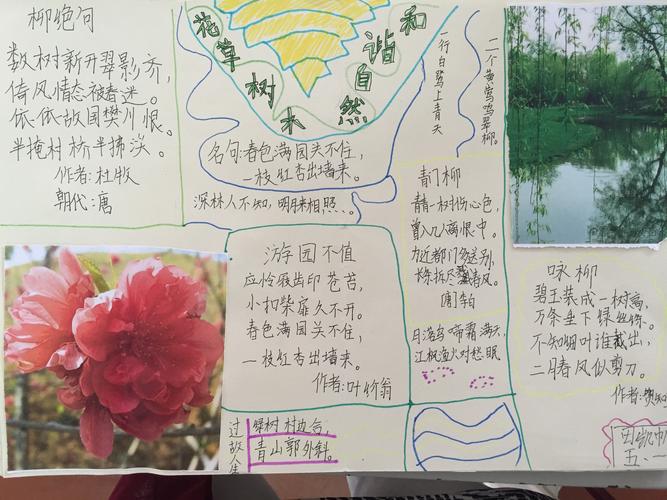 柳绝句
数树新开翠影齐,
倚风情态被春迷。
依依故国樊川恨,
半掩村桥半拂溪。
作者:杜牧
朝代:唐
花草树木
和谐自然
名句:春色满园关不住,
一枝红杏出墙来。
深林人不知,明月来相照。
二个黄鹂鸣翠柳。
一行白鹭上青天
青门柳
青青一树伤心色,
曾入几人离恨中。
为近都门多送别,
长条折尽减春风。
唐:白
月落乌啼霜满天,
江枫渔火对愁眠
游园不值
应怜屐齿印苍苔,
小扣柴扉久不开。
春色满园关不住,
一枝红杏出墙来。
作者:叶绍翁
咏柳
碧玉装成一树高,
万条垂下绿丝绦。
不知细叶谁裁出,
二月春风似剪刀。
作者:贺知
过故人
绿树村边合,
青山郭外斜。
五、一